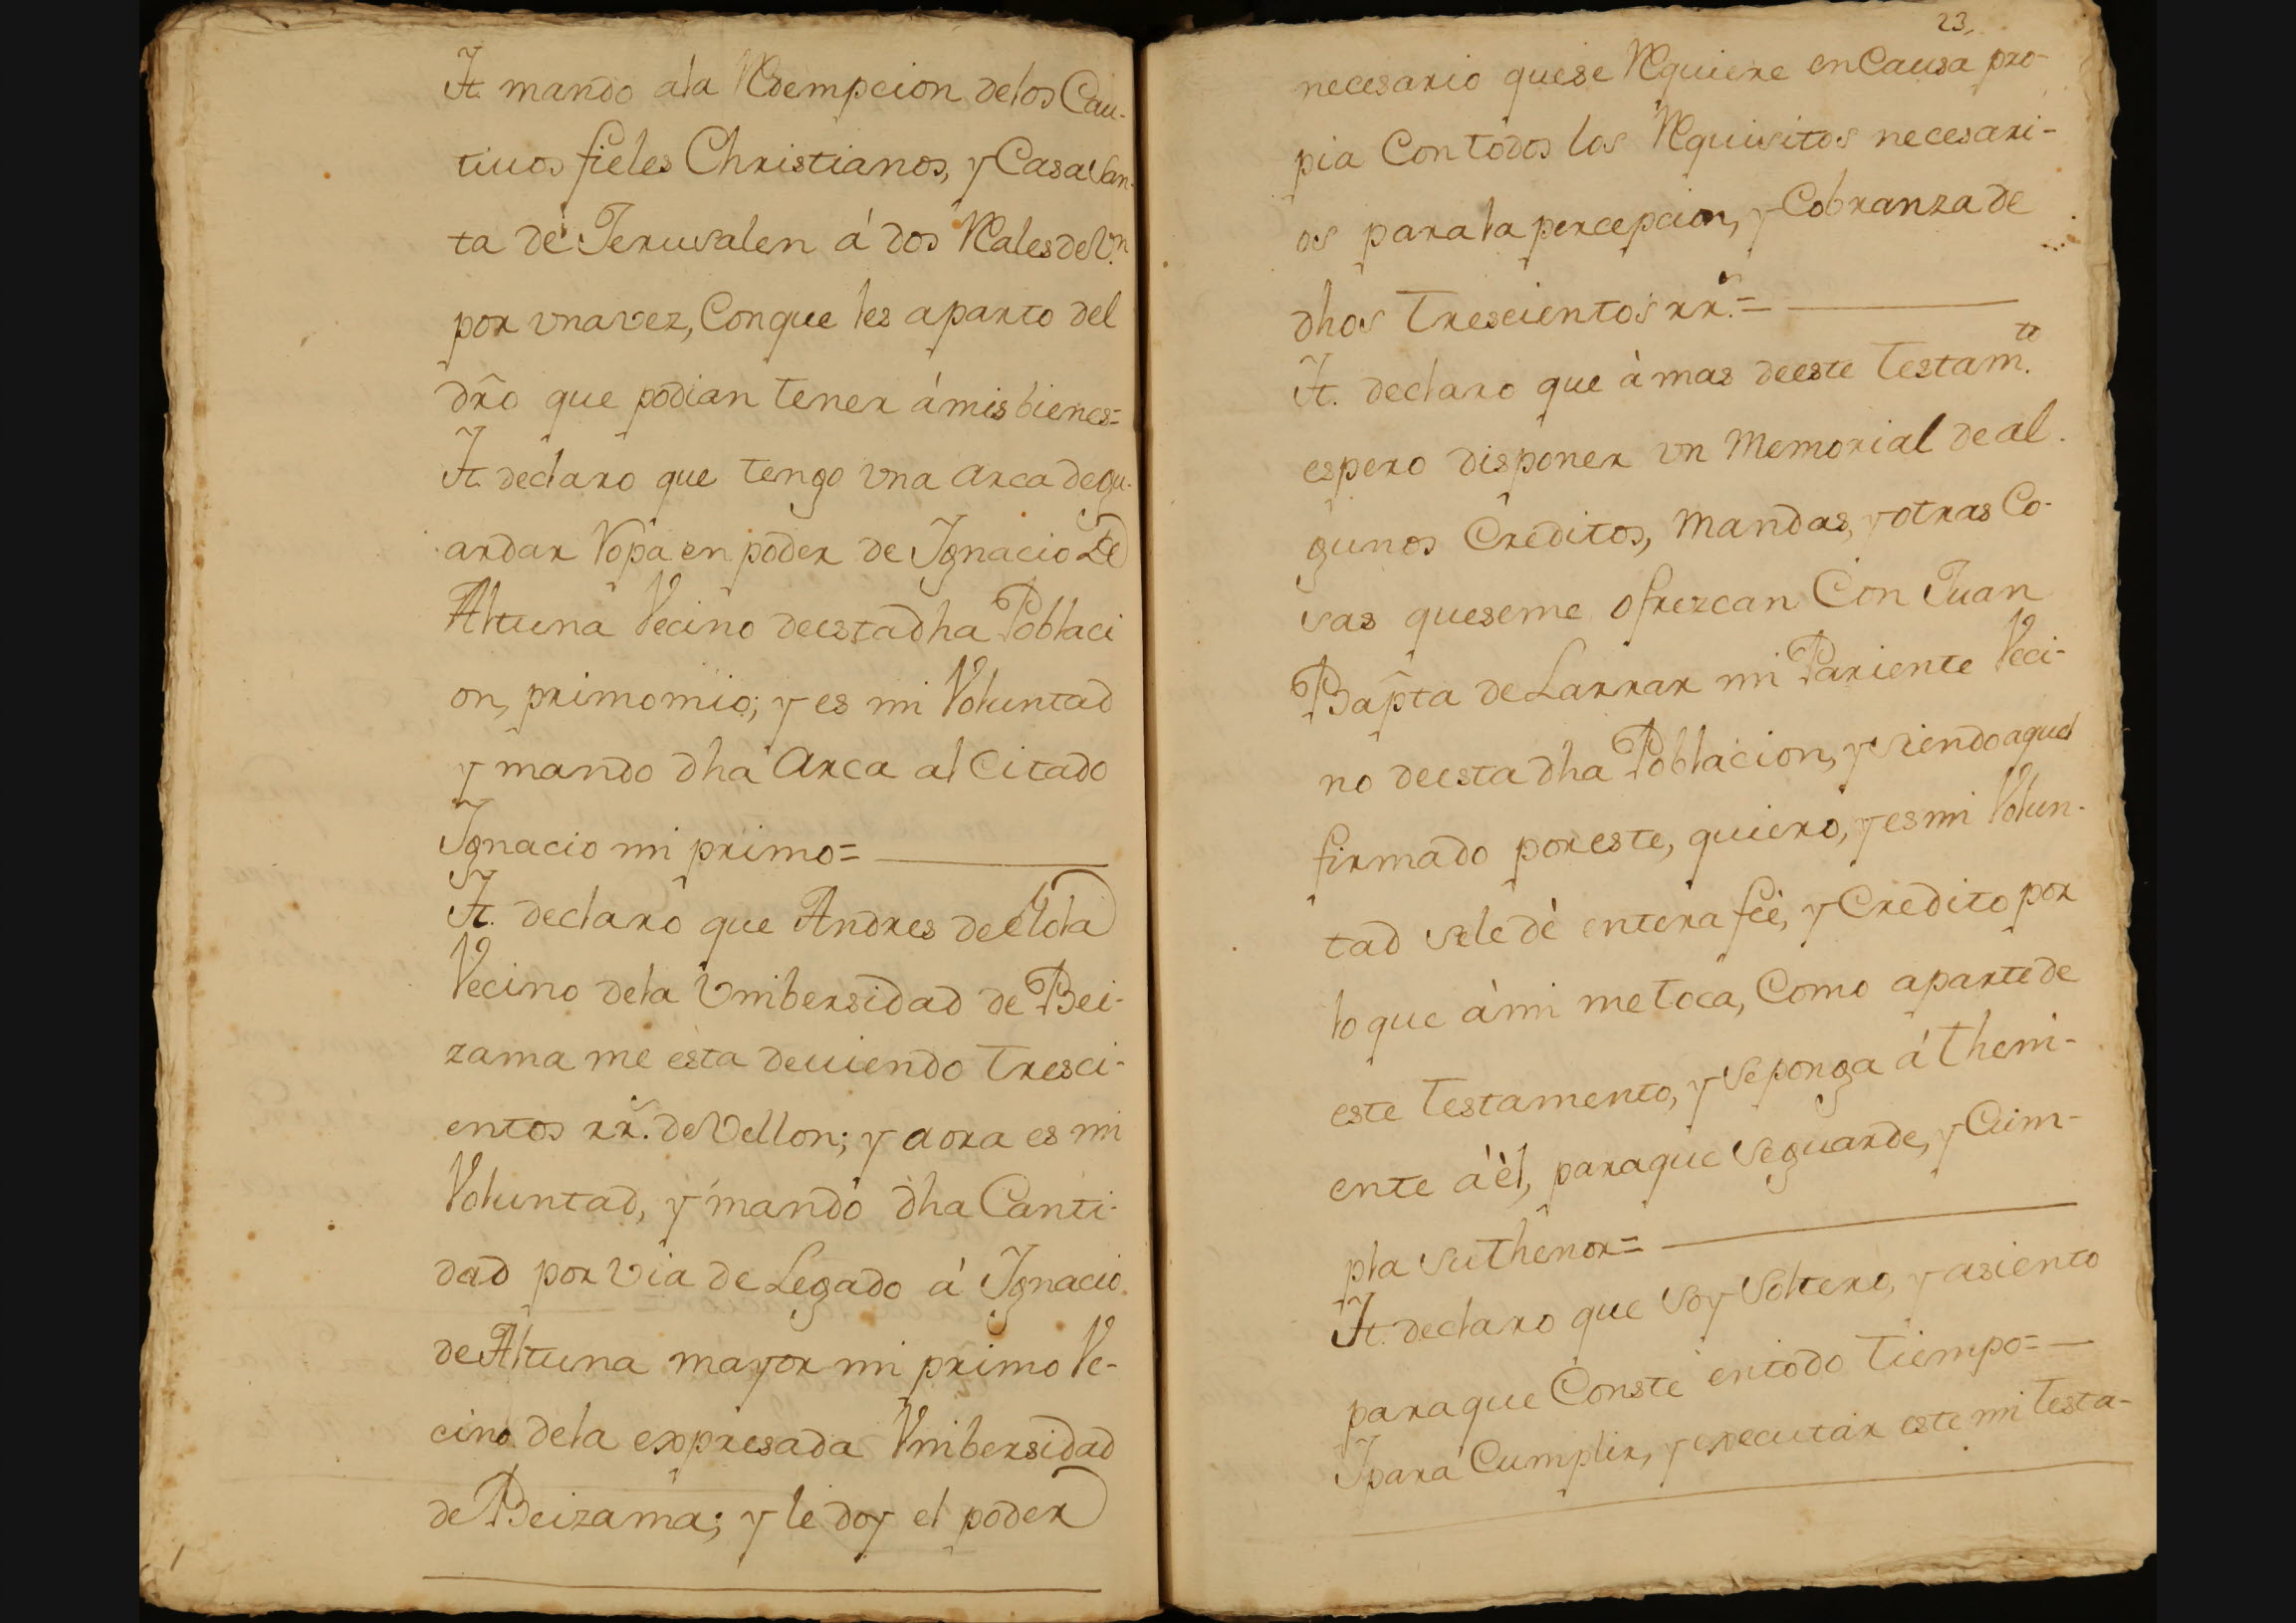 It. mando ala Redempcion delos Cau-
tiuos fieles Christianos, y Casa San-
ta de Jerusalen á dos Reales de V.n
por vna vez, Con que les aparto del
dr̃o que podian tener á mis bienes=
It. declaro que tengo vna arca de gu-
ardar Ropa en poder de Ignacio De
Altuna Vecino de esta dha Poblaci
on, primo mio; y es mi Voluntad
y mando dha Arca al Citado
Ignacio mi primo=
It. declaro que Andres de Elola
Vecino dela Vnibersidad de Bei-
zama me esta deuiendo Tresci-
entos rr.s de Vellon; y aora es mi
Voluntad, y mando dha Canti-
dad por via de Legado á Ignacio
de Altuna mayor mi primo Ve-
cino dela expresada Vnibersidad
de Beizama; y le doy el poder
23,
necesario que se Requiere en Causa pro-
pia Con todos los Requisitos necesari-
os para la percepcion, y Cobranza de
dhos Trescientos rr.s=
It. declaro que à mas de este Testam.to
espero disponer vn Memorial de al-
gunos Creditos, Mandas, y otras Co-
sas que se me ofrezcan Con Juan
Bap̃ta de Larrar mi Pariente Veci-
no de esta dha Poblacion, y siendo aquel
firmado por este, quiero, y es mi Volun-
tad se le dè entera feè, y Credito por
lo que à mi me toca, Como aparte de
este Testamento, y se ponga á Theni-
ente á èl, para que se guarde, y Cum-
pla su thenor=
It. declaro que soy Soltero, y asiento
para que Conste en todo Tiempo=
I para Cumplir, y executar este mi Testa-